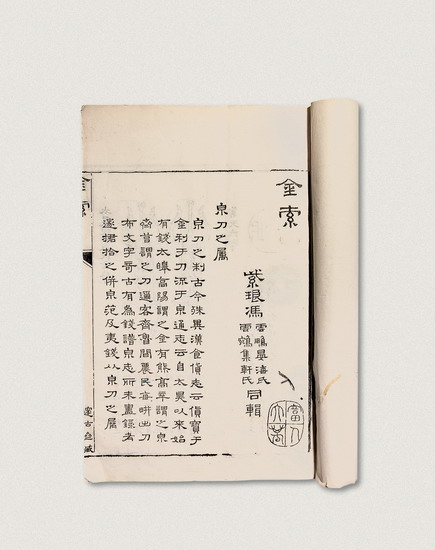 金索
紫琅馮
雲鵬晏海氏
雲鵷集軒氏
同輯
泉刀之屬
泉刀之制古今殊異漢食貨志云貨寶于
金利于刀流于泉通志云自太昊以來始
有錢太皥高陽謂之金有熊高辛謂之泉
齊莒謂之刀邇客齊魯間農民每耕出刀
布文字奇古有為錢譜泉志所未盡錄者
遂捃拾之併泉范及夷錢以泉刀之屬
金索
邃古齋藏